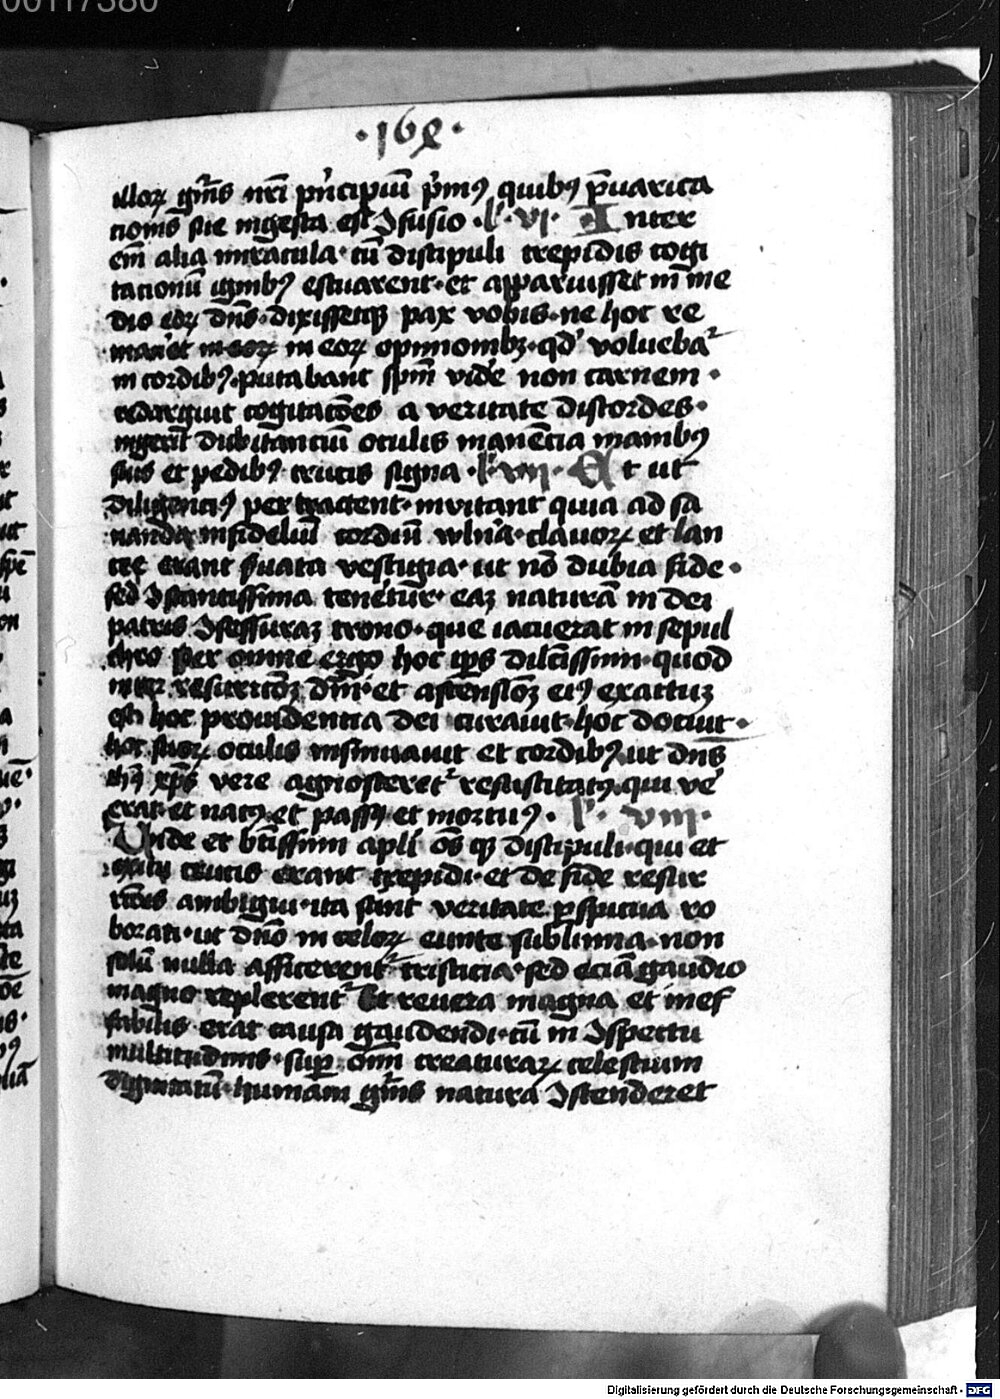 00117380
·168·
illoꝝ gn̄is nr̄i pͥncipiū pͥmꝰ quibꝰ p̄uarica
tionis sue ingesta est ꝯfusio · l · vi · Inter
ea alia miracula · cū discipuli trepidis cogi
tationū ignibꝰ estuarent · et apparuisset in me
dio eoꝝ dn̄s · dixissetqꝫ pax vobis · ne hoc re
maneret in eoꝝ in eoꝝ opinionibꝫ · qd̓ voluebat᷑
in cordibꝰ · putabant spm̄ vide̓ non carnem ·
redarguit cogitatōes a veritate discordes ·
ingerit dubitantiū oculis manēcia manibꝰ
suis et pedibꝰ crucis signa · l · vii · Et ut
diligenciꝰ pertractent · invitant quia ad sa
nanda infideliū cordiū wln̓a · clauoꝝ et lan
cee erant ẜuata vestigia · ut nō dubia fide ·
sed ꝯstantissima tener̄et᷑ · eaꝫ naturā in dei
patris ꝯsessuraꝫ trono · que iacuerat in sepul
chro per omne ergo hoc tp̄s dilc̄issimi · quod
inter resurrectōꝫ dn̄i et ascensiōꝫ eiꝰ exactuꝫ
est hoc prouidentia dei curauit · hoc docuit ·
hoc suoꝝ oculis insinuauit et cordibꝰ · ut dn̄s
ihc̄ xp̄s vere agnosceret᷑ resuscitatꝰ · qui ve̓
erat et natꝰ et passꝰ et mortuꝰ · l · viii ·
Unde et btīssimi apl̄i om̄s qꝫ discipuli · qui et
exitu crucis erant trepidi · et de fide resur
rc̄ōis ambigui · ita sunt veritate ꝑspicua ro
borati · ut dn̄o in celoꝝ eunte sublimia · non
solū nulla afficerent᷑ tristicia · sed eciā gaudio
magno replerent᷑ Et reuera magna et inef
fabilis erat causa gaudendi · cū in ꝯspectu
multitudinis · suꝑ om̄m creaturaꝝ celestium
dignitatū · humani gn̄is natura ꝯscenderet
Digitalisierung gefördert durch die Deutsche Forschungsgemeinschaft - DFG